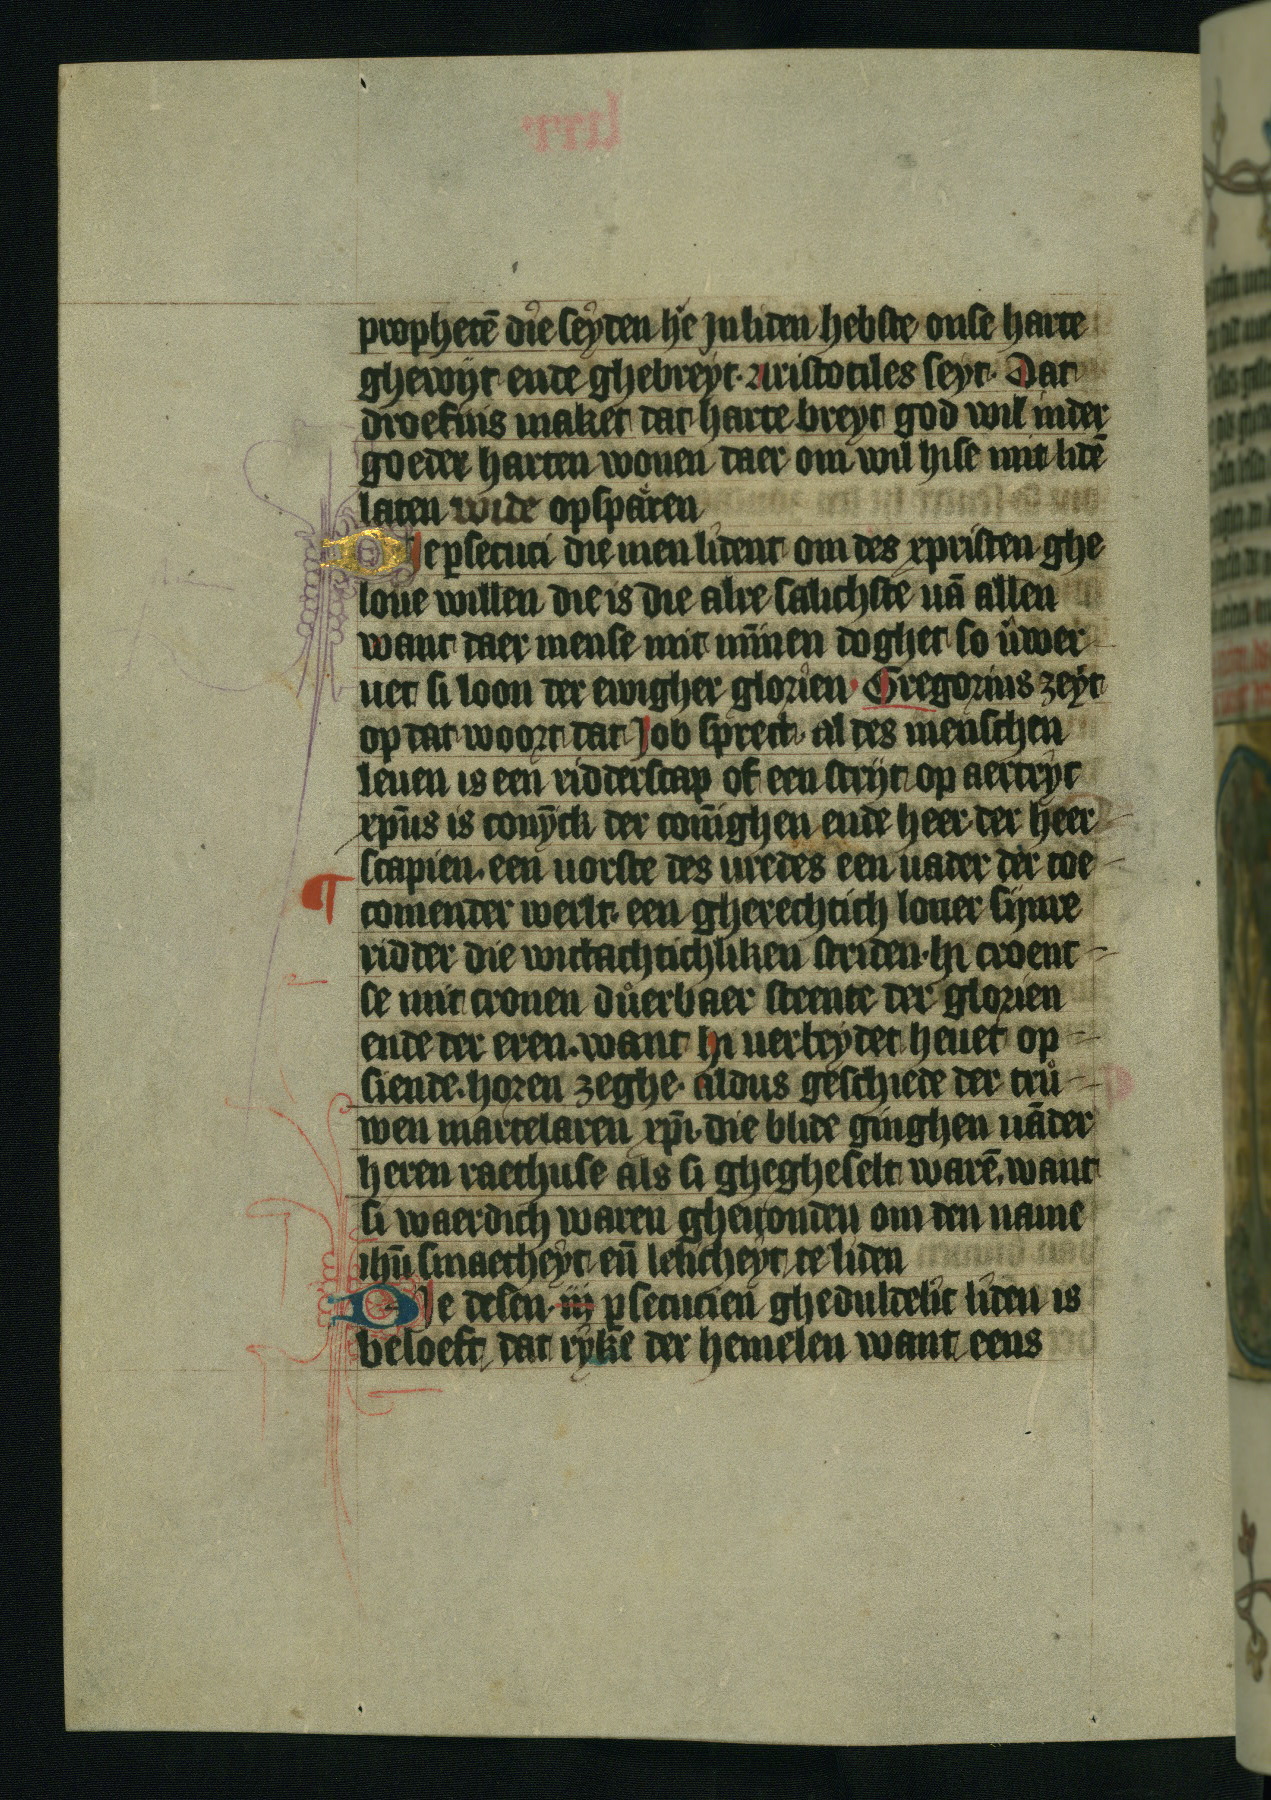 prophetē die seyden he Jn liden hebste onse harte
ghewijt ende ghebreyt. Aristotiles seyt. Dat
droefnis maket dat harte breyt god wil inder
goeder harten wonen daer om wil hise mit lidē
laten wide opsparen
Die psecuci die men lident om des xpristen ghe
loue willen die is die alre salichste uā allen
want daer mense mit minnen doghet so uwer
uet si loon der ewigher glorien. Gregorius zeyt
op dat woort dat Job sprect. al des menschen
leuen is een ridderscap of een strijt op aertryc
xpūs is conȳck der conīghen ende heer der heer
scapien. een uorste des uredes een uader der toe
comender werlt. een gherechtich louer sijnre
ridder die witachtichliken striden. hi croent
se mit cronen duerbaer steente der glorien
ende der eren. want hi uerbeydet heuet op
siende horen zeghe. aldus geschiede der tru
wen martelaren xpī. die blide ginghen uāder
heren raethuse als si ghegheselt warē. want
si waerdich waren gheuonden om den name
ihū smaetheyt eñ lelicheyt te liden
Die desen iij psecucien gheduldelic liden is
beloeft dat rijke der hemelen want eens